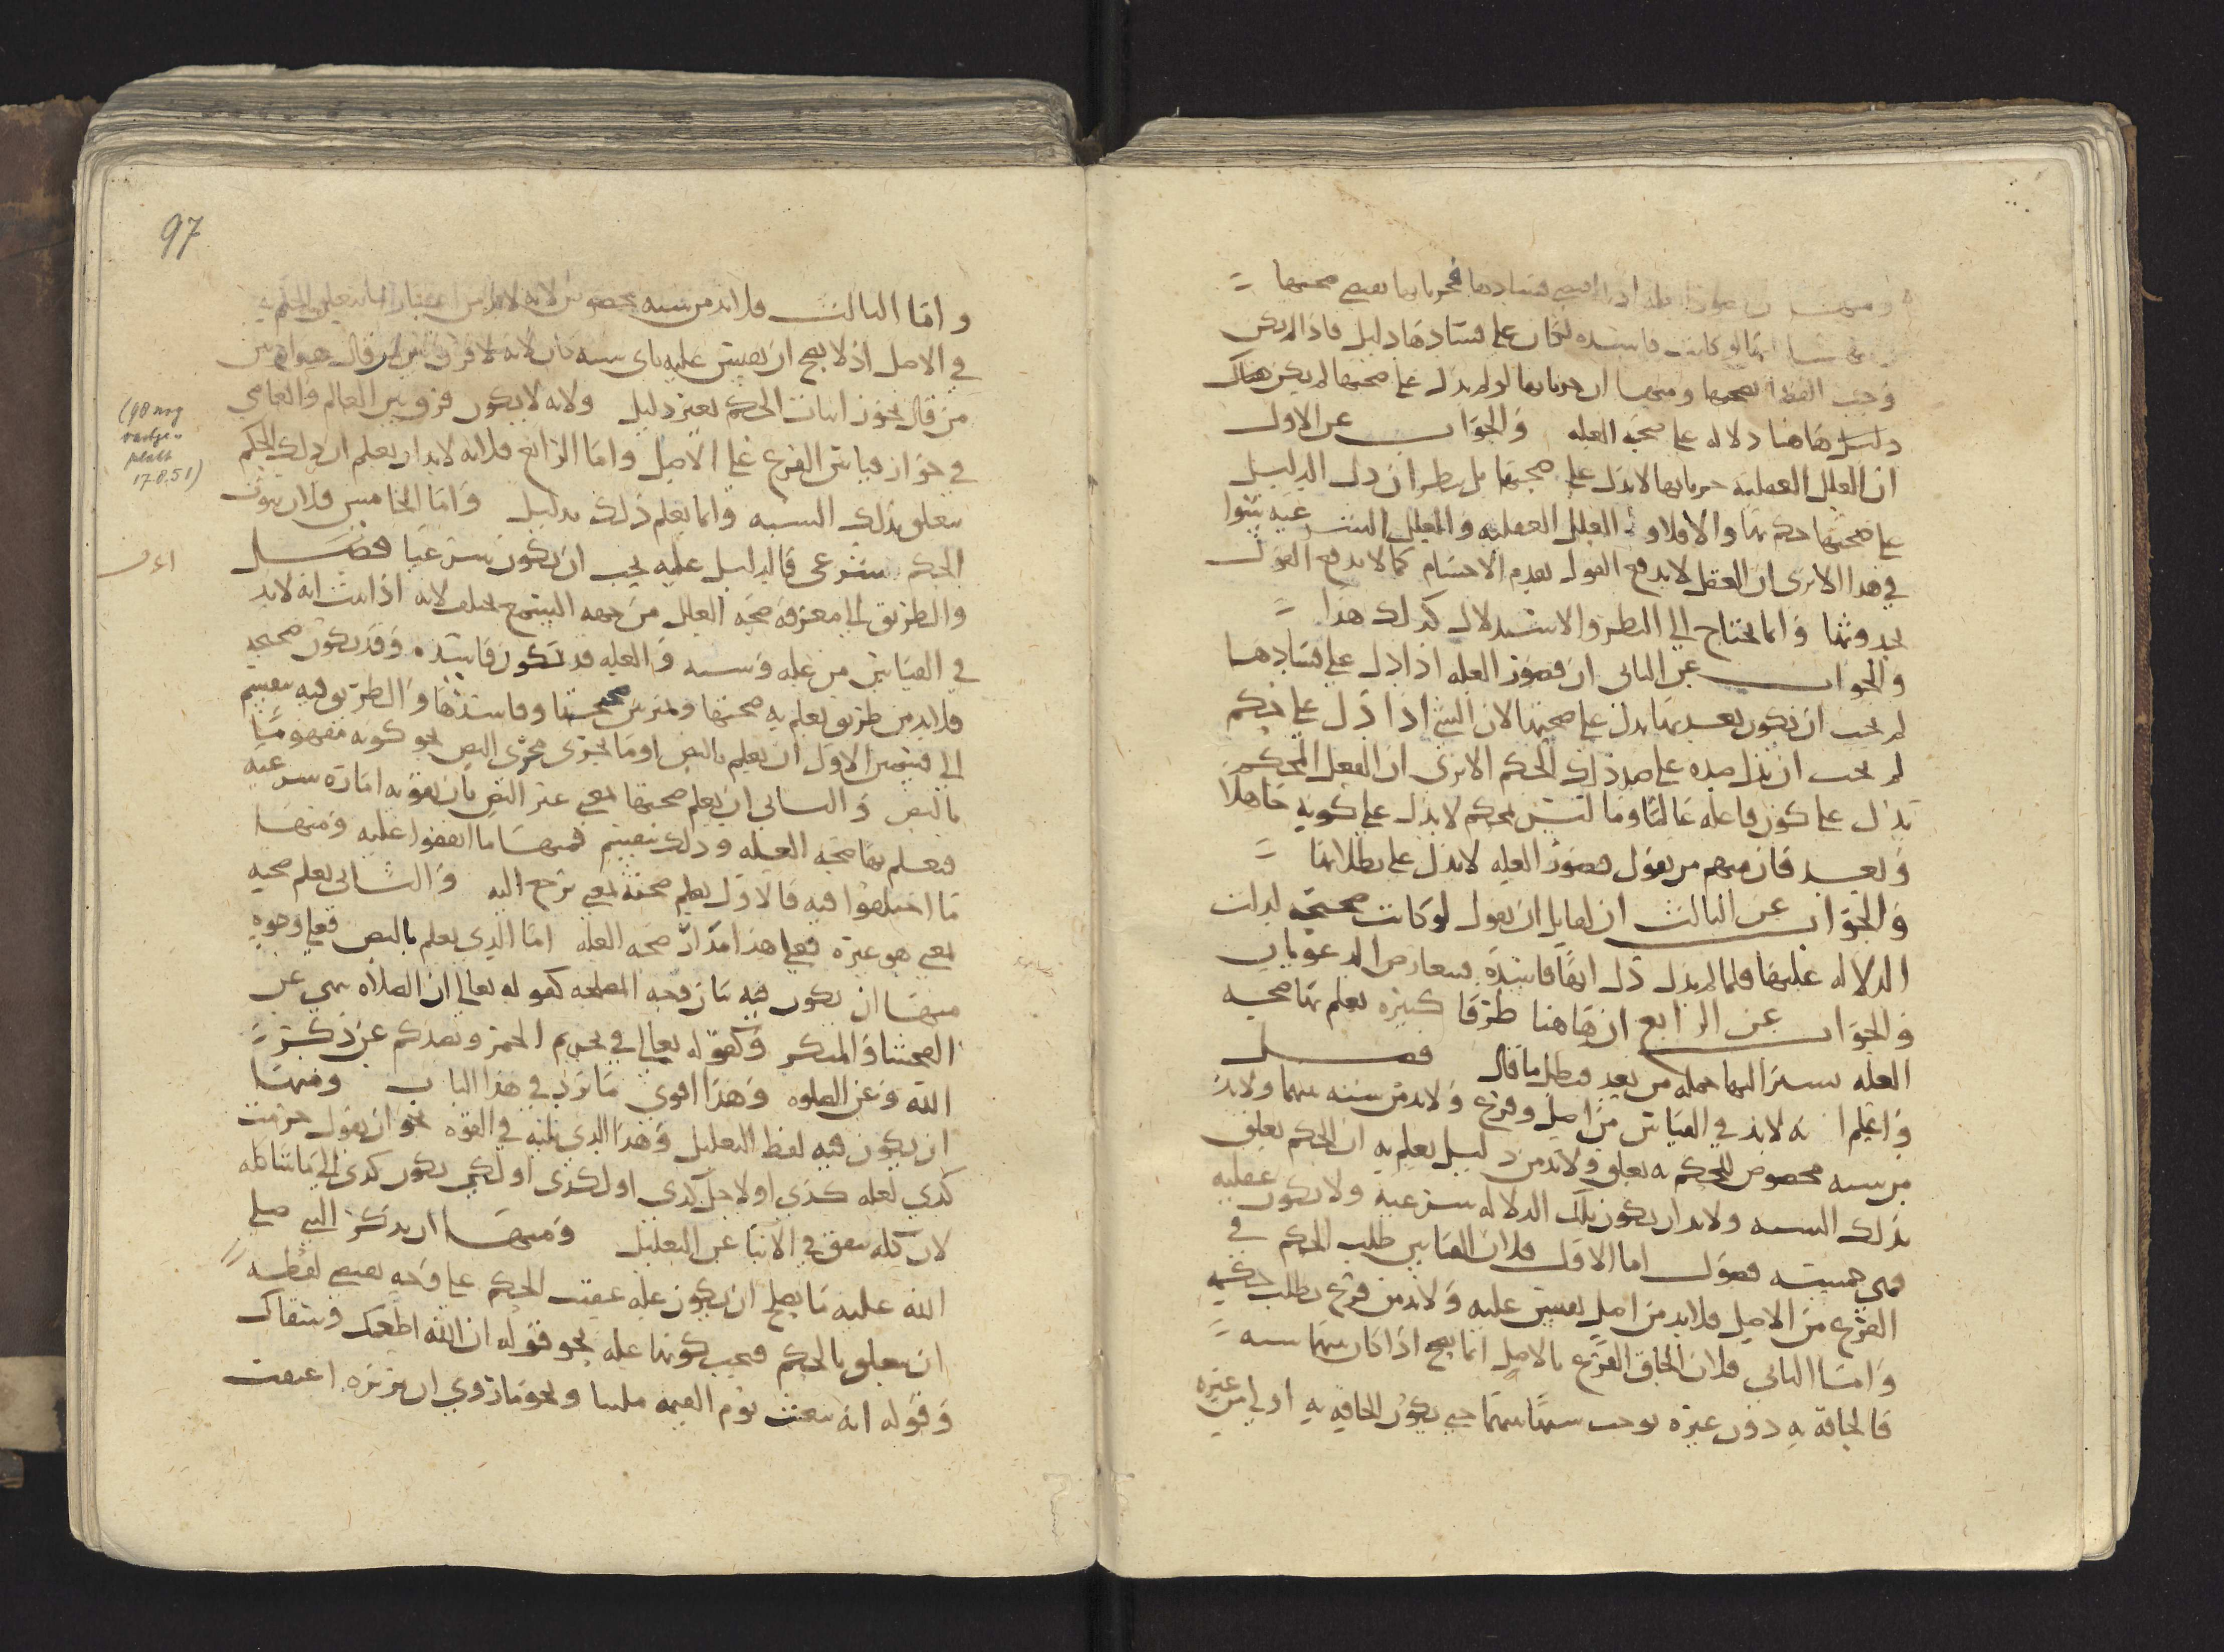 فسادها فجريانها يقتضي صحتها
انها لو كانت فاسده لكان على فسادها دليل فاذا لم يكن
وجب القضا بصحتها ومنها ان جريانها لو لم يدل على صحتها لم يكن هناك
دليل هاهنا دلاله على صحه العله والجواب عن الاول
ان العلل العقليه جريانها لا يدل على صحتها بل ينظر ان دل الدليل
على صحتها حكم بها والا فلا و العلل العقليه والعلل الشرعيه سوا
في هذا الا ترى ان العقل لا يدفع القول بقدم الاجسام كما لا يدفع القول
بحدوثها وانما يحتاج الى النظر والاستدلال كذلك هذا
والجواب عن الثاني ان قصور العله اذا دل على فسادها
لم يجب ان يكون تعديها يدل على صحتها لان الشي اذا دل على حكم
لم يجب ان يدل ضده على ضد ذلك الحكم الا ترى ان الفعل المحكم
يدل على كون فاعله عالما وما ليس بمحكم لا يدل على كونه جاهلا
وبعد فان منهم من يقول قصور العله لا يدل على بطلانها
والجواب عن الثالث ان لقايل ان يقول لو كانت صحيحه لدلت
الدلاله عليها فلما لم يدل دل انها فاسده فيتعارض الدعويان
والجواب عن الرابع ان هاهنا طرقا كثيره يعلم بها صحه
العله سنشير اليها جمله من بعد فبطل ما قال فصل
واعلم انه لا بد في القياس من اصل وفرع ولا بد من شبه بينهما ولا بد
من شبه مخصوص للحكم به تعلق ولا بد من دليل يعلم به ان الحكم تعلق
بذلك الشبه ولا بد ان يكون تلك الدلاله شرعيه ولا يكون عقليه
فهي خمسه فصول اما الاول فلان القياس طلب الحكم في
الفرع من الاصل فلا بد من اصل يقيس عليه ولا بد من فرع يطلب حكمه
واما الثاني فلان الحاق الفرع بالاصل انما يصح اذا كان بينهما شبه
فالحاقه به دون غيره يوجب شبها بينهما حتى يكون الحاقه به اولى من غيره
97
واما الثالث فلا بد من شبه مخصوص لانه لا بد من اعتبار ما يتعلق الحكم به
في الاصل اذ لا يصح ان يقيس عليه باي شبه كان لانه لا فرق بين من قال
من قال يجوز اثبات الحكم بغير دليل ولانه لا يكون فرق بين العالم والعامي
في جواز قياس الفرع على الاصل واما الرابع فلانه لا بد ان يعلم ان ذلك الحكم
يتعلق بذلك الشبه وانما يعلم ذلك بدليل واما الخامس فلان ثبوت
الحكم شرعي فالدليل عليه يجب ان يكون شرعيا فصل
والطريق الى معرفه صحه العلل من جهه السمع يختلف لانه اذا ثبت انه لا بد
في القياس من عله وشبه والعله قد تكون فاسده وقد يكون صحيحه
فلا بد من طريق يعلم به صحتها وتميز بين صحيحها وفاسدها والطريق فيه ينقسم
الى قسمين الاول ان يعلم بالنص او ما يجري مجرى النص نحو كونه مفهوما
بالنص والثاني ان يعلم صحتها بمعنى غير النص بان يقوم امارة شرعيه
فيعلم بها صحه العله وذلك ينقسم فمنها ما اتفقوا عليه ومنها
ما اختلفوا فيه فالاول يعلم صحته بمعنى يرجع اليه والثاني يعلم صحته
بمعنى هو غيره فعلى هذا مدار صحه العله اما الذي يعلم بالنص فعلى وجوه
منها ان يكون فيه بيان وجه المصلحه كقوله تعالى ان الصلاه تنهى عن
الفحشا والمنكر وكقوله تعالى في تحريم الخمر ويصدكم عن ذكر
الله وعن الصلوه وهذا اقوى ما يرد في هذا الباب ومنها
ان يكون فيه لفظ التعليل وهذا الذي يليه في القوه نحو ان يقول حرمت
كذى لعله كذى او لاجل كذى او لكذى او لكي يكون كذى الى ما شاكله
لان كله يتفق في الانبا عن التعليل ومنها ان يذكر النبي صلى
الله عليه ما يصلح ان يكون عله عقيب الحكم على وجه يقتضي لفظه
ان يتعلق بالحكم فيجب كونها عله نحو قوله ان الله اطعمك وسقاك
وقوله انه يبعث يوم القيمه ملبيا ونحو ما روي ان بريره اعتقت
(98 nog
17.8.51)